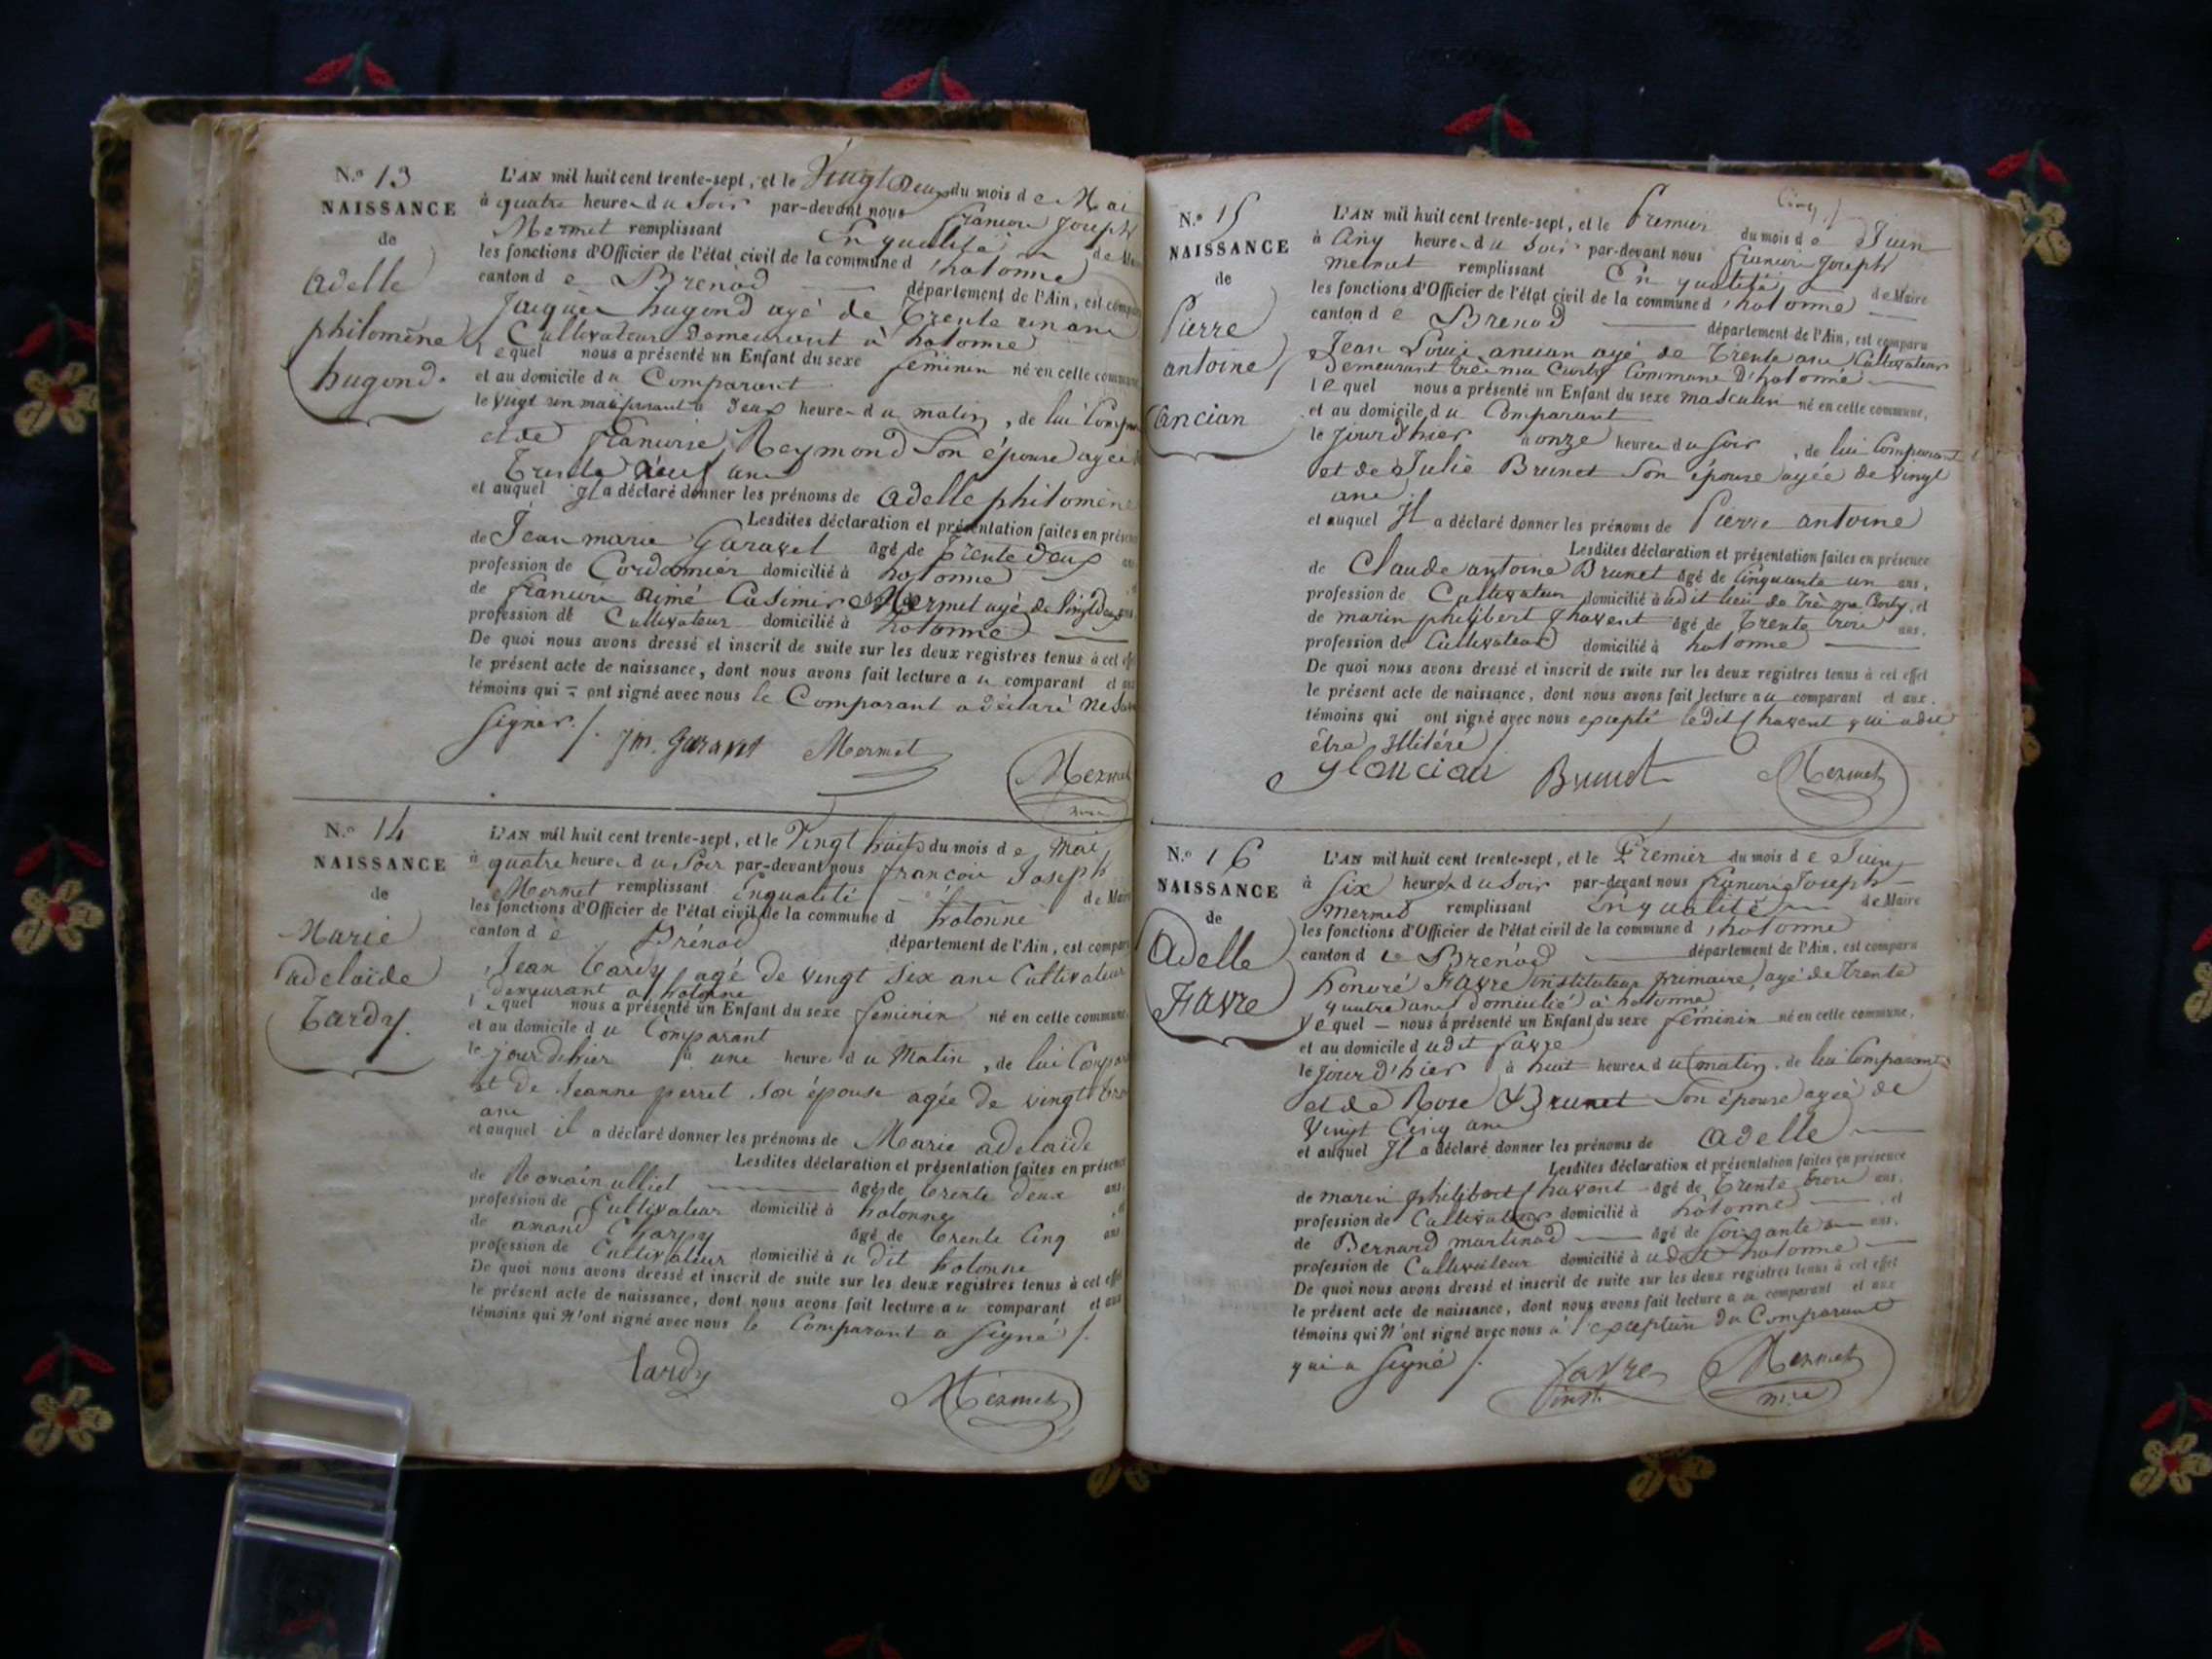 N.º 13
NAISSANCE
de
Adelle
philomène
hugond.
L'AN mil huit cent trente-sept, et le Vingt deux du mois de Mai
à quatre heures du Soir par-devant nous francois Joseph
Mermet remplissant En qualité de Maire
les fonctions d'Officier de l'état civil de la commune d'hotonne
canton de Brenod département de l'Ain, est comparu
Jaques hugond agé de Trente un ans
Cultivateur Demeurant à hotonne
lequel nous a présenté un Enfant du sexe féminin né en cette commune,
et au domicile du Comparant
le vingt un mai à deux heures du matin, de lui Comparant
et de francoise Reymond Son épouse agée de
Trente neuf ans
et auquel Il a déclaré donner les prénoms de Adelle philomène
Lesdites déclaration et présentation faites en présence
de Jean marie Garavet âgé de trente deux ans
profession de Cordonnier domicilié à hotonne
de francois aimé Casimir Mermet agé de Vingt deux ans
profession de Cultivateur domicilié à hotonne
De quoi nous avons dressé et inscrit de suite sur les deux registres tenus à cet effet
le présent acte de naissance, dont nous avons fait lecture au comparant et aux
témoins qui ont signé avec nous le Comparant a déclaré ne
Signer./.
jm. Garavet Mermet
Mermet
N.º 14
NAISSANCE
de
Marie
adelaide
Tardy.
L'AN mil huit cent trente-sept, et le Vingt huit du mois de Mai
à quatre heures du Soir par-devant nous francois Joseph
Mermet remplissant En qualité de Maire
les fonctions d'Officier de l'état civil de la commune d hotonne
canton de Brénod département de l'Ain, est comparu
Jean Tardy agé de vingt six ans Cultivateur
demeurant a hotonne
lequel nous a présenté un Enfant du sexe féminin né en cette commune,
et au domicile du Comparant
le jour dhier à une heure du Matin, de lui Comparant
et de Jeanne perret son épouse agée de vingt trois
ans
et auquel il a déclaré donner les prénoms de Marie adelaide
Lesdites déclaration et présentation faites en présence
de Romain ulliet âgé de trente deux ans,
profession de Cultivateur domicilié à hotonne
de amand Charpy âgé de trente Cinq ans
profession de Cultivateur domicilié à u dit hotonne
De quoi nous avons dressé et inscrit de suite sur les deux registres tenus à cet effet
le présent acte de naissance, dont nous avons fait lecture au comparant et aux
témoins qui n'ont signé avec nous le Comparant a signé /.
tardy
Mermet
N.º 15
NAISSANCE
de
Pierre
antoine
Ancian
L'AN mil huit cent trente-sept, et le Premier du mois de Juin
à Cinq heures du Soir par-devant nous francois Joseph
mermet remplissant En qualité de Maire
les fonctions d'Officier de l'état civil de la commune d'hotonne
canton de Brenod département de l'Ain, est comparu
Jean Louis ancian agé de Trente ans Cultivateur
Demeurant Commune D'hotonne
lequel nous a présenté un Enfant du sexe masculin né en cette commune,
et au domicile du Comparant
le Jourd'hier à onze heures du Soir, de lui Comparant
et de Julie Brunet Son épouse agée de Vingt
ans
et auquel Il a déclaré donner les prénoms de Pierre antoine
Lesdites déclaration et présentation faites en présence
de Claude antoine Brunet âgé de Cinquante un ans,
profession de Cultivateur domicilié à udit lieu de, et
de marin philibert âgé de Trente trois ans,
profession de Cultivateur domicilié à hotonne
De quoi nous avons dressé et inscrit de suite sur les deux registres tenus à cet effet
le présent acte de naissance, dont nous avons fait lecture au comparant et aux
témoins qui ont signé avec nous excepté ledit qui a dit
être Illitéré /.
Brunet Mermet
N.º 16
NAISSANCE
de
Adelle
FAVRE
L'AN mil huit cent trente-sept, et le Premier du mois de Juin
à Six heures du Soir par-devant nous francois Joseph
mermet remplissant En qualité de Maire
les fonctions d'Officier de l'état civil de la commune d'hotonne
canton de Brénod département de l'Ain, est comparu
honoré FAVRE instituteur primaire, agé de Trente
quatre ans domicilié à hotonne
lequel nous a présenté un Enfant du sexe féminin né en cette commune,
et au domicile dudit favre
le Jourd'hier à huit heures du matin, de lui Comparant
et de Rose Brunet Son épouse agée de
Vingt Cinq ans
et auquel Il a déclaré donner les prénoms de Adelle
Lesdites déclaration et présentation faites en présence
de marin philibert âgé de Trente trois ans,
profession de Cultivateur domicilié à hotonne, et
de Bernard martinod âgé de soixante ans,
profession de Cultivateur domicilié à udit hotonne
De quoi nous avons dressé et inscrit de suite sur les deux registres tenus à cet effet
le présent acte de naissance, dont nous avons fait lecture au comparant et aux
témoins qui n'ont signé avec nous à l'exception du Comparant
qui a Signé /.
favre Mermet
inst. m.re